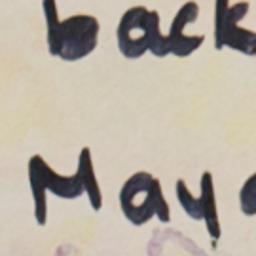 back
May